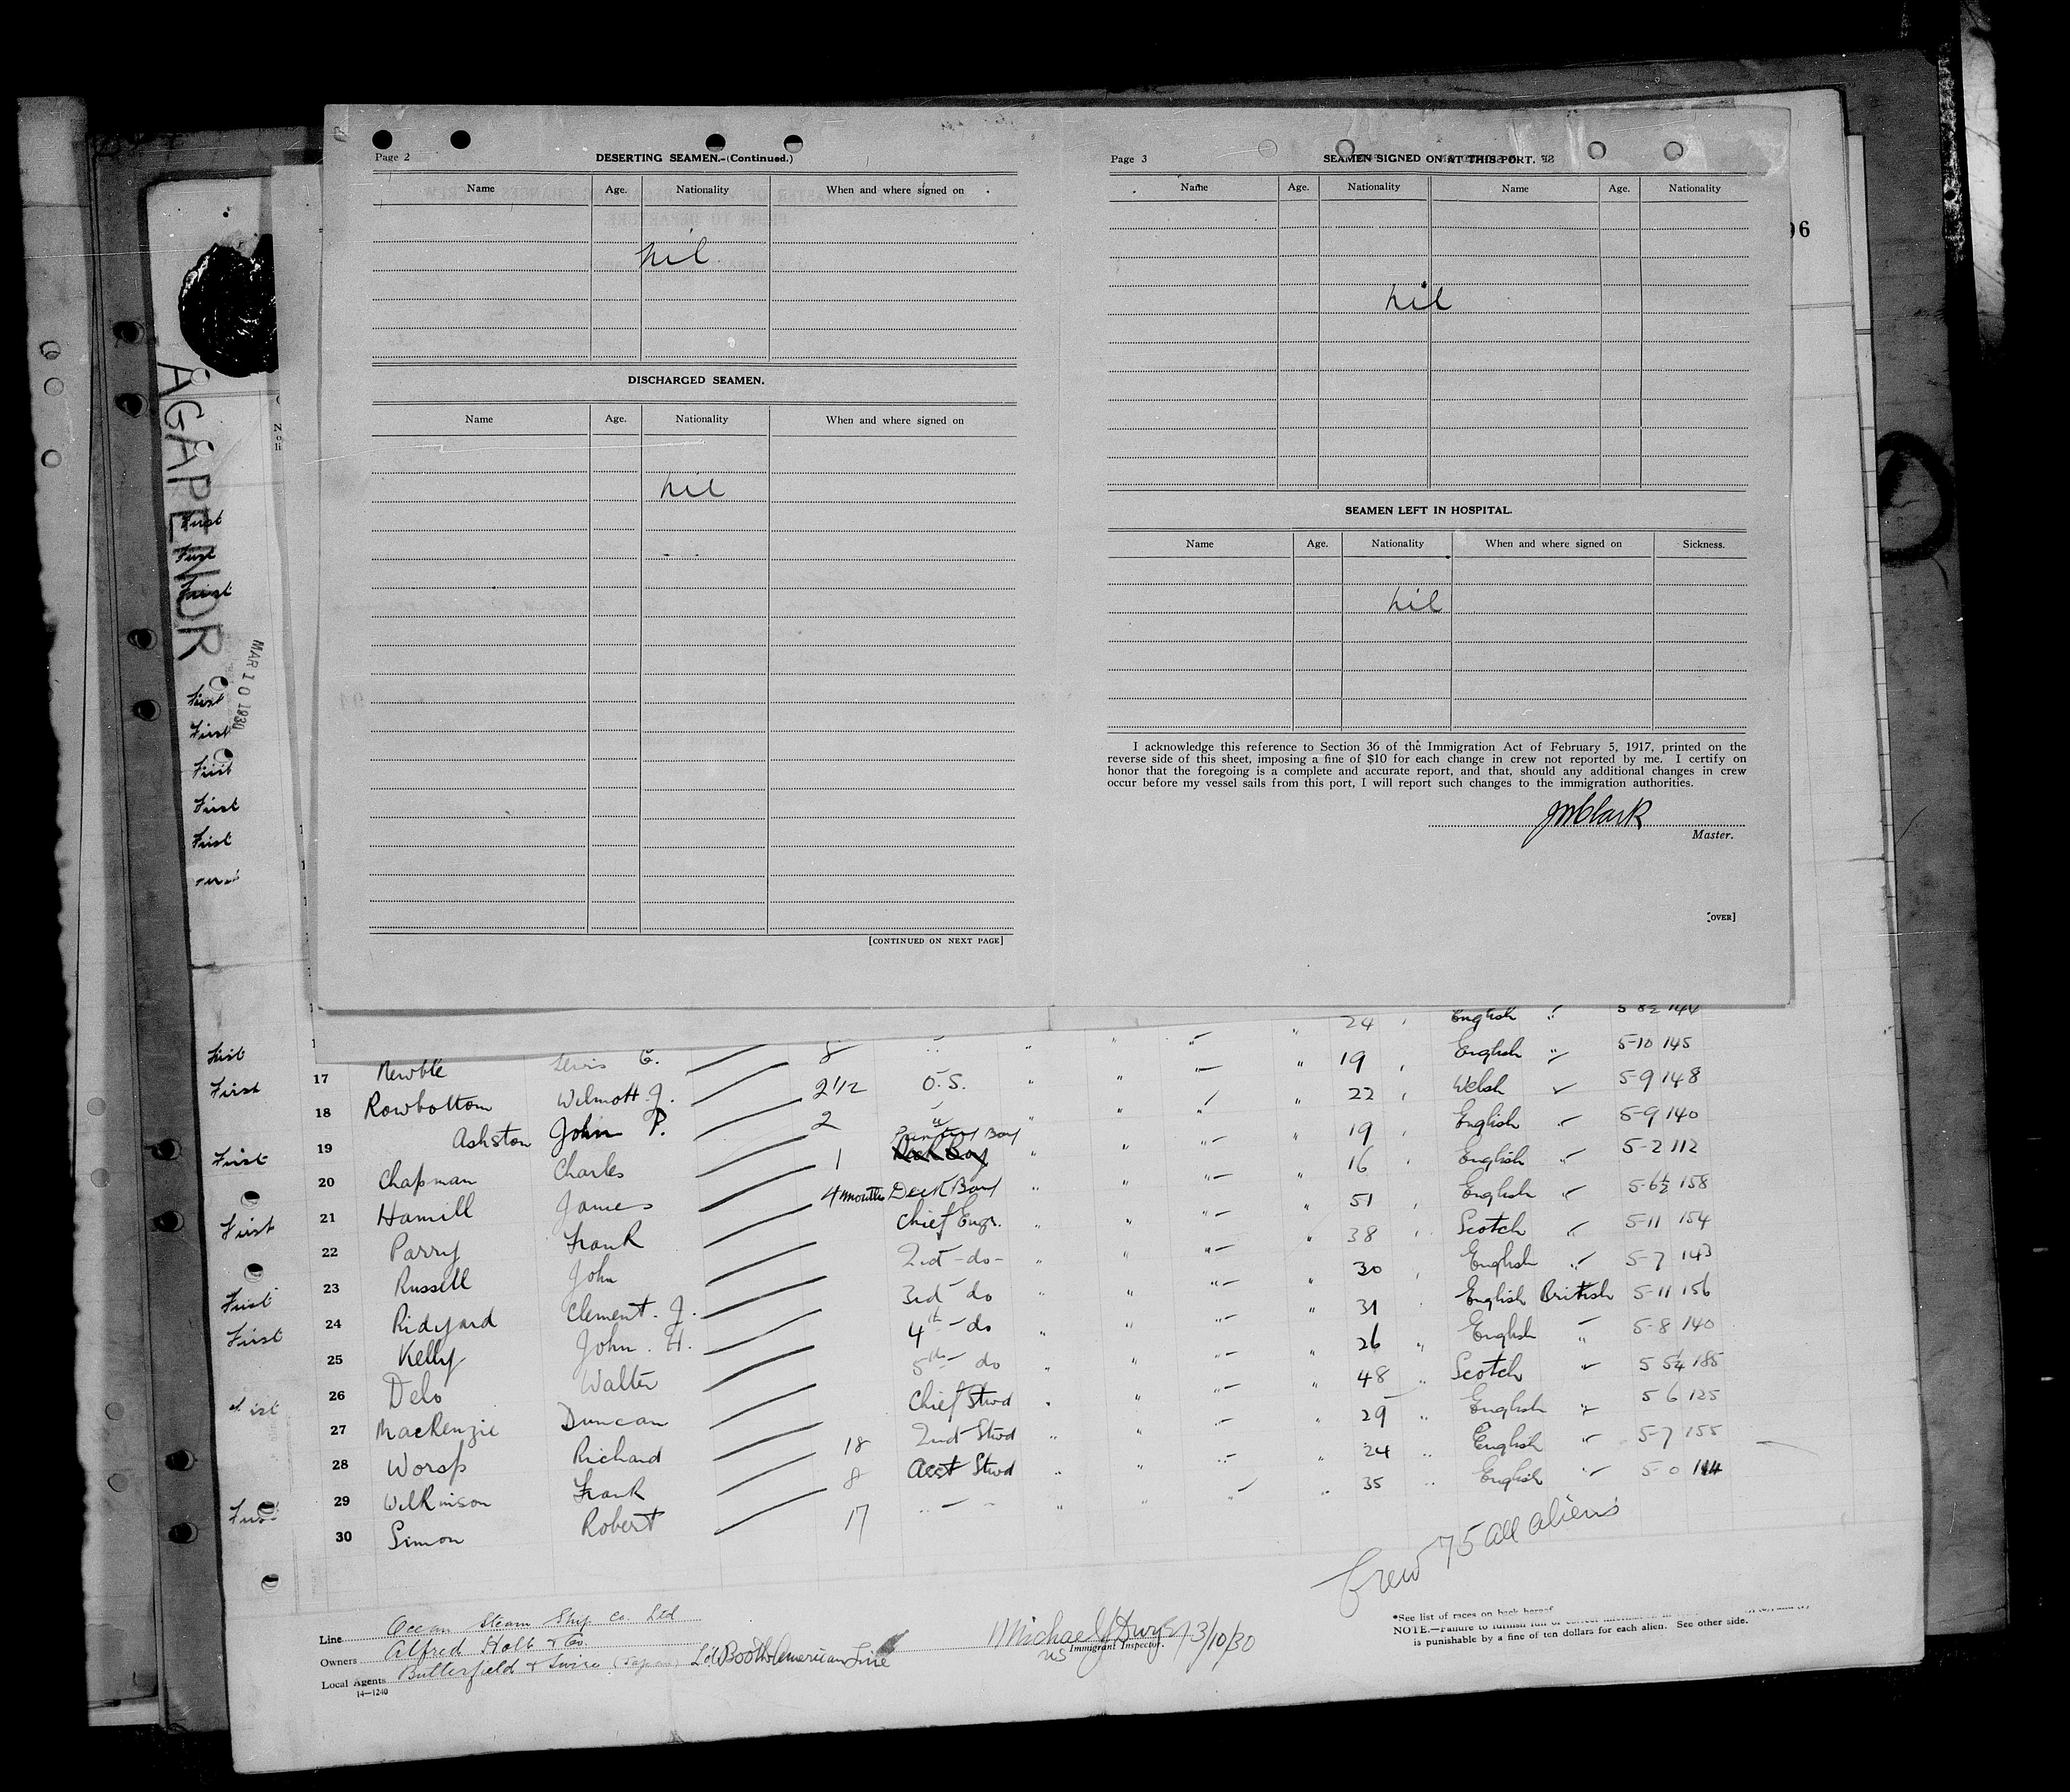 Page 2
DESERTING SEAMEN.-(Continued.)
Name Age. Nationality When and where signed on
nil
DISCHARGED SEAMEN.
Name Age. Nationality When and where signed on
nil
[CONTINUED ON NEXT PAGE]
Page 3
SEAMEN SIGNED ON AT THIS PORT.
Name Age. Nationality Name Age. Nationality
nil
SEAMEN LEFT IN HOSPITAL.
Name Age. Nationality When and where signed on Sickness.
nil
I acknowledge this reference to Section 36 of the Immigration Act of February 5, 1917, printed on the
reverse side of this sheet, imposing a fine of $10 for each change in crew not reported by me. I certify on
honor that the foregoing is a complete and accurate report, and that, should any additional changes in crew
occur before my vessel sails from this port, I will report such changes to the immigration authorities.
Clark
Master.
[OVER]
96
AGAPENOR
MAR 10 1930
First
First
First
First
First
First
First
First
24 English 5-8½ 144
First 17 Newble Lewis E. 8 " 19 English " 5-10 145
First 18 Rowbottom Wilmott J. 2 1/2 O.S. " " " 22 Welsh 5-9 148
19 Ashston John P. 2 " " " " 19 English 5-9 140
First 20 Chapman Charles 1 Pantry Boy Deck Boy " " " 16 English 5-2 112
21 Hamill James 4 months Deck Boy " " " 51 English 5-6½ 158
First 22 Parry Frank Chief Engr. " " " 38 Scotch 5-11 154
23 Russell John 2nd -do- " " 30 English 5-7 143
First 24 Ridyard Clement. J. 3rd - do " " " 31 English British 5-11 156
First 25 Kelly John. H. 4th - do " " " 26 English " 5-8 140
26 Delo Walter 5th - do " " " 48 Scotch 5 5¼ 185
27 MacKenzie Duncan Chief Stwd " " " 29 English 5 6 125
28 Worsp Richard 18 2nd Stwd " " " 24 English 5-7 155
29 Wilkinson Frank 8 Asst Stwd " " " 35 English 5-0
30 Simon Robert 17 " "
Crew 75 all aliens
Line Ocean Steam Ship Co. Ltd
Owners Alfred Holt & Co.
Local Agents Butterfield & Swire (Japan) Ltd Booth American Line
14—1240
Michael J Dwyer 3/10/30
US Immigrant Inspector.
*See list of races on back hereof
NOTE.—Failure to furnish full or correct
is punishable by a fine of ten dollars for each alien. See other side.